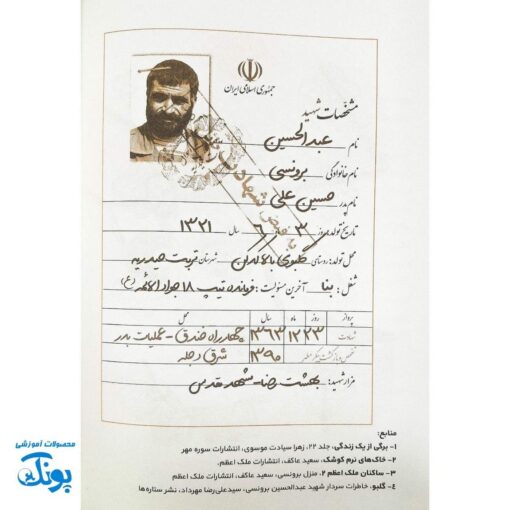 جمهوری اسلامی ایران
مشخصات شهید
نام عبدالحسین
نام خانوادگی برونسی
نام پدر حسین علی
تاریخ تولد: روز ۳ ماه ۶ سال ۱۳۲۱
محل تولد: روستای گلبوی بالا کدکن شهرستان تربت حیدریه
شغل: بنا آخرین مسئولیت: فرمانده تیپ ۱۸ جوادالائمه (ع)
پرواز روز ماه سال محل
شهادت ۲۳ ۱۲ ۱۳۶۳ چهارراه خندق - عملیات بدر
تفحص و بازگشت پیکر مطهر ۱۳۹۰ شرق دجله
مزار شهید: بهشت رضا - مشهد مقدس
منابع:
۱- برگی از یک زندگی، جلد ۲۲، زهرا سیادت موسوی، انتشارات سوره مهر
۲- خاک‌های نرم کوشک، سعید عاکف، انتشارات ملک اعظم.
۳- ساکنان ملک اعظم ۲. منزل برونسی، سعید عاکف، انتشارات ملک اعظم.
٤- گلبو. خاطرات سردار شهید عبدالحسین برونسی، سیدعلی‌رضا مهرداد، نشر ستاره‌ها
محصولات آموزشی
پونک